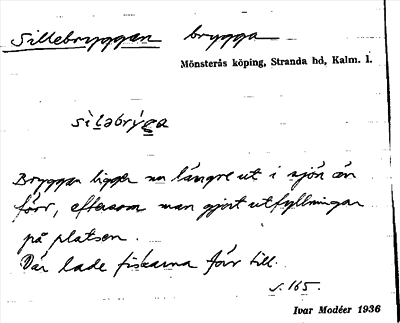 Sillebryggan brygga
Mönsterås köping, Stranda hd, Kalm. l.
sìləbrỳga
Bryggan ligger nu längre ut i sjön än
förr, eftersom man gjort utfyllningar
på platsen.
Där lade fiskarna förr till.
s. 165.
Ivar Modéer 1936